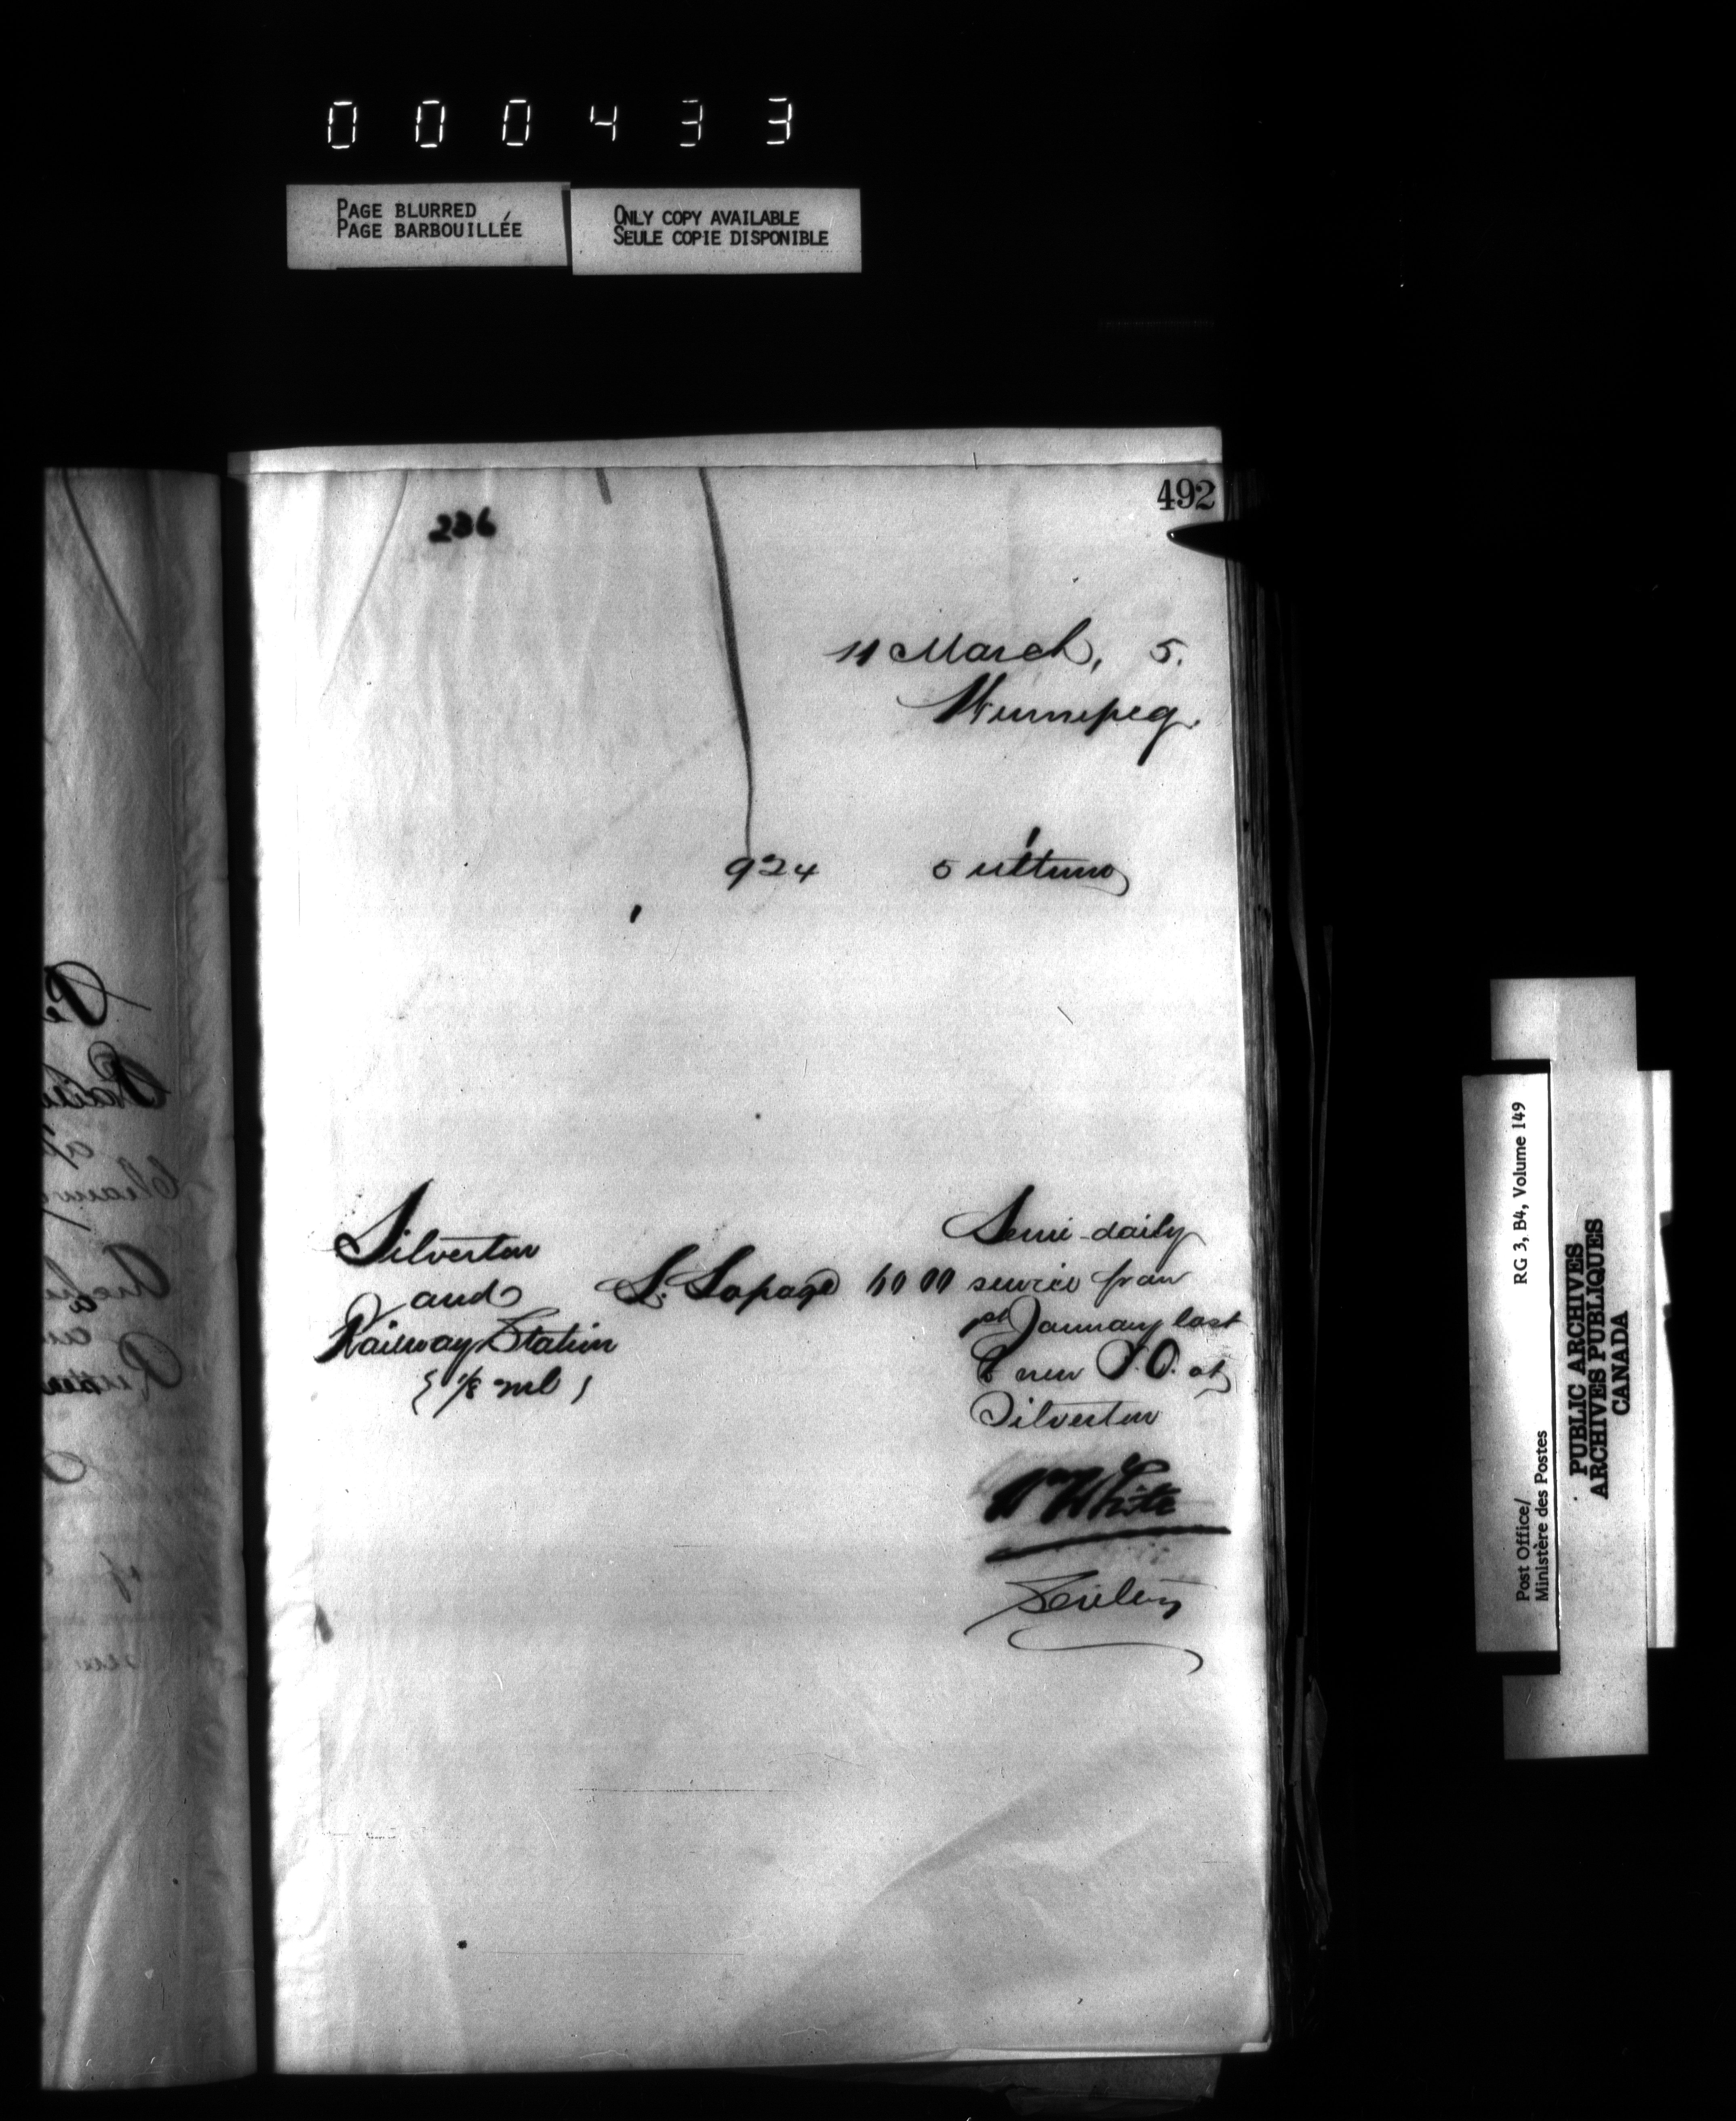 000433
PAGE BLURRED
PAGE BARBOUILLÉE
ONLY COPY AVAILABLE
SEULE COPIE DISPONIBLE
492
236
11 March, 5.
Winnipeg.
924 5 ultimo
Silverton
and
Railway Station
( 1/8 mile )
L. Lapage
Semi-daily
service from
1st January last
new P.O. at
Silverton
Wm White
RG 3, B4, Volume 149
Post Office/
Ministère des Postes
PUBLIC ARCHIVES
ARCHIVES PUBLIQUES
CANADA